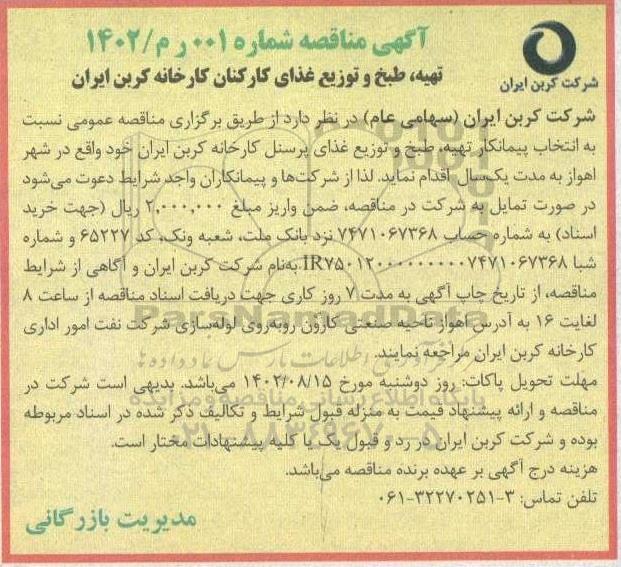 آگهی مناقصه شماره ۰۰۱ ر م/۱۴۰۲
تهیه، طبخ و توزیع غذای کارکنان کارخانه کربن ایران
شرکت کربن ایران
شرکت کربن ایران (سهامی عام) در نظر دارد از طریق برگزاری مناقصه عمومی نسبت
به انتخاب پیمانکار تهیه، طبخ و توزیع غذای پرسنل کارخانه کربن ایران خود واقع در شهر
اهواز به مدت یک‌سال اقدام نماید. لذا از شرکت‌ها و پیمانکاران واجد شرایط دعوت می‌شود
در صورت تمایل به شرکت در مناقصه، ضمن واریز مبلغ ۲,۰۰۰,۰۰۰ ریال (جهت خرید
اسناد) به شماره حساب ۷۴۷۱۰۶۷۳۶۸ نزد بانک ملت، شعبه ونک، کد ۶۵۲۲۷ و شماره
شبا IR۷۵۰۱۲۰۰۰۰۰۰۰۰۰۰۷۴۷۱۰۶۷۳۶۸ به‌نام شرکت کربن ایران و آگاهی از شرایط
مناقصه، از تاریخ چاپ آگهی به مدت ۷ روز کاری جهت دریافت اسناد مناقصه از ساعت ۸
لغایت ۱۶ به آدرس اهواز ناحیه صنعتی کارون روبه‌روی لوله‌سازی شرکت نفت امور اداری
کارخانه کربن ایران مراجعه نمایند.
مهلت تحویل پاکات: روز دوشنبه مورخ ۱۴۰۲/۰۸/۱۵ می‌باشد. بدیهی است شرکت در
مناقصه و ارائه پیشنهاد قیمت به منزله قبول شرایط و تکالیف ذکر شده در اسناد مربوطه
بوده و شرکت کربن ایران در رد و قبول یک یا کلیه پیشنهادات مختار است.
هزینه درج آگهی بر عهده برنده مناقصه می‌باشد.
تلفن تماس: ۳-۳۲۲۷۰۲۵۱-۰۶۱
مدیریت بازرگانی
ParsNamadData
مرکز فرآوری اطلاعات پارس نماد داده ها
پایگاه اطلاع رسانی مناقصه و مزایده
۰۲۱-۸۸۳۴۹۶۷۰-۵